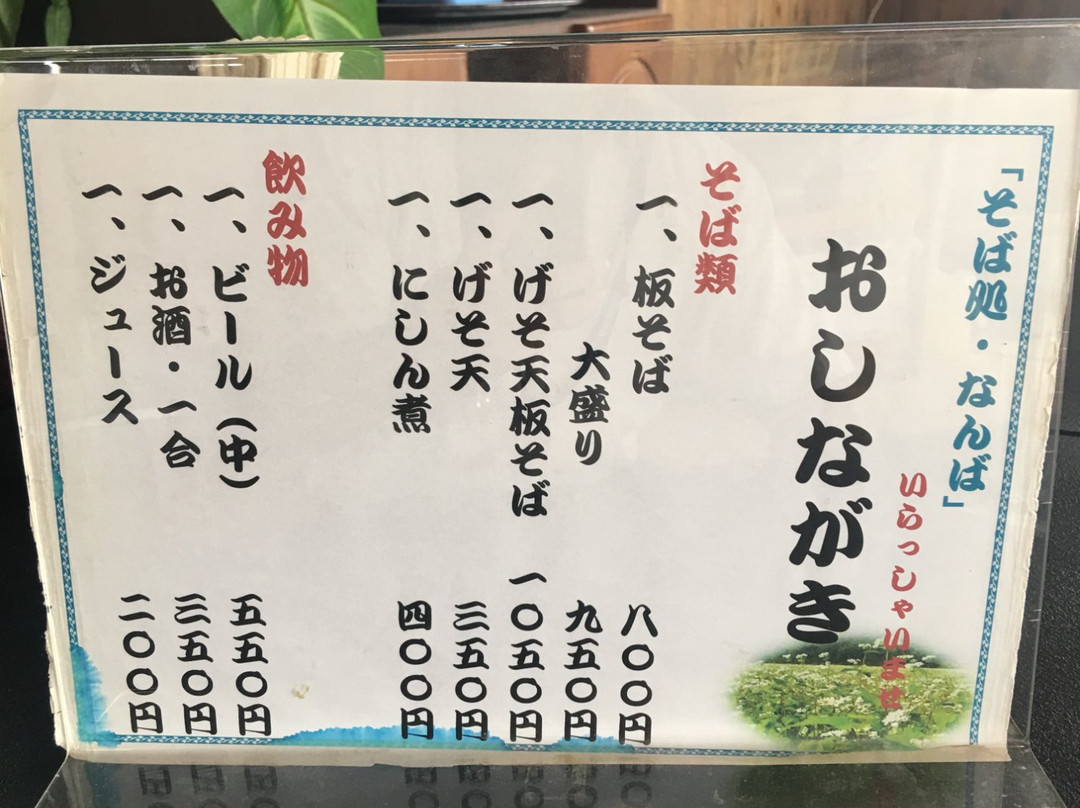 「そば処・なんば」
いらっしゃいませ
おしながき
そば類
一、板そば 八〇〇円
大盛り 九五〇円
一、げそ天板そば 一〇五〇円
一、げそ天 三五〇円
一、にしん煮 四〇〇円
飲み物
一、ビール（中） 五五〇円
一、お酒・一合 三五〇円
一、ジュース 二〇〇円